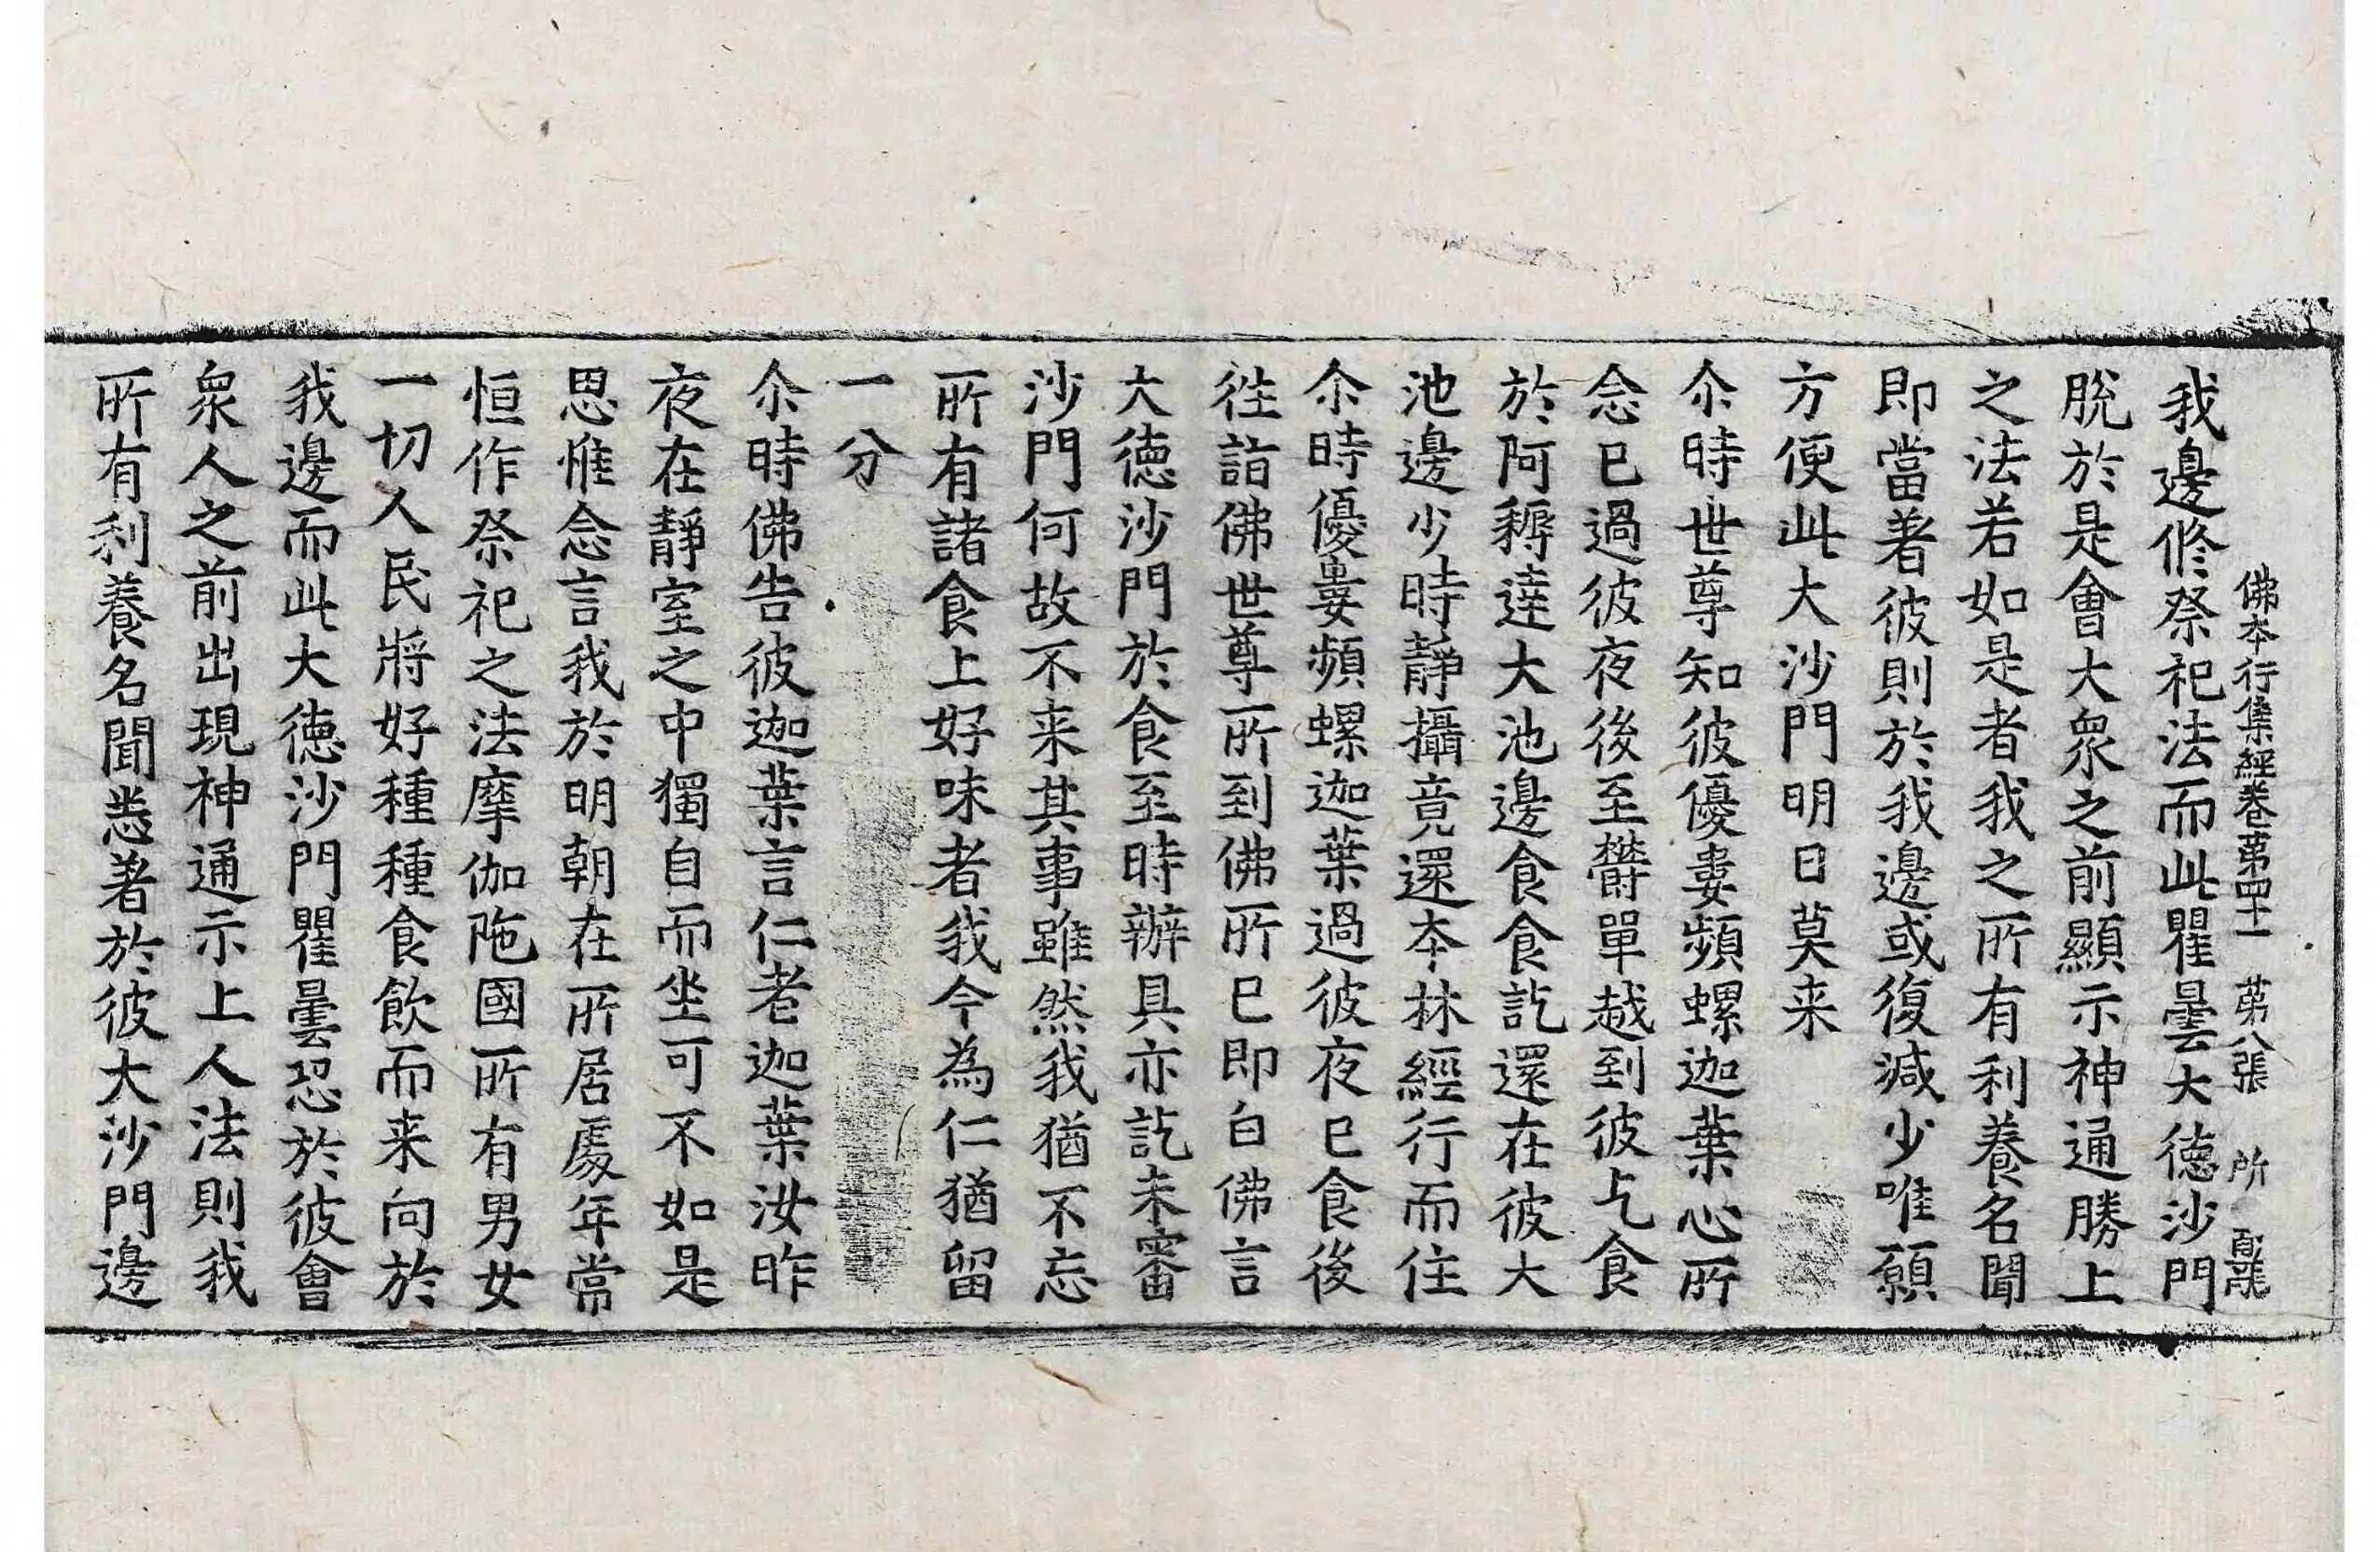 佛本行集經卷第四十一 第八張 所
我邊俢祭祀法而此瞿曇大德沙門
脫於是會大衆之前顯示神通勝上
之法若如是者我之所有利養名聞
即當著彼則於我邊或復減少唯願
方便此大沙門明日莫来
尒時世尊知彼優婁頻螺迦葉心所
念已過彼夜後至欝單越到彼乞食
於阿耨達大池邊食食訖還在彼大
池邊少時靜攝竟還本林經行而住
尒時優婁頻螺迦葉過彼夜已食後
往詣佛世尊所到佛所已即白佛言
大德沙門於食至時辦具亦訖未審
沙門何故不来其事雖然我猶不忘
所有諸食上好味者我今為仁猶留
一分
尒時佛告彼迦葉言仁者迦葉汝昨
夜在靜室之中獨自而坐可不如是
思惟念言我於明朝在所居處年常
恒作祭祀之法摩伽陁國所有男女
一切人民將好種種食飲而来向於
我邊而此大德沙門瞿曇恐於彼會
衆人之前出現神通示上人法則我
所有利養名聞悉著於彼大沙門邊